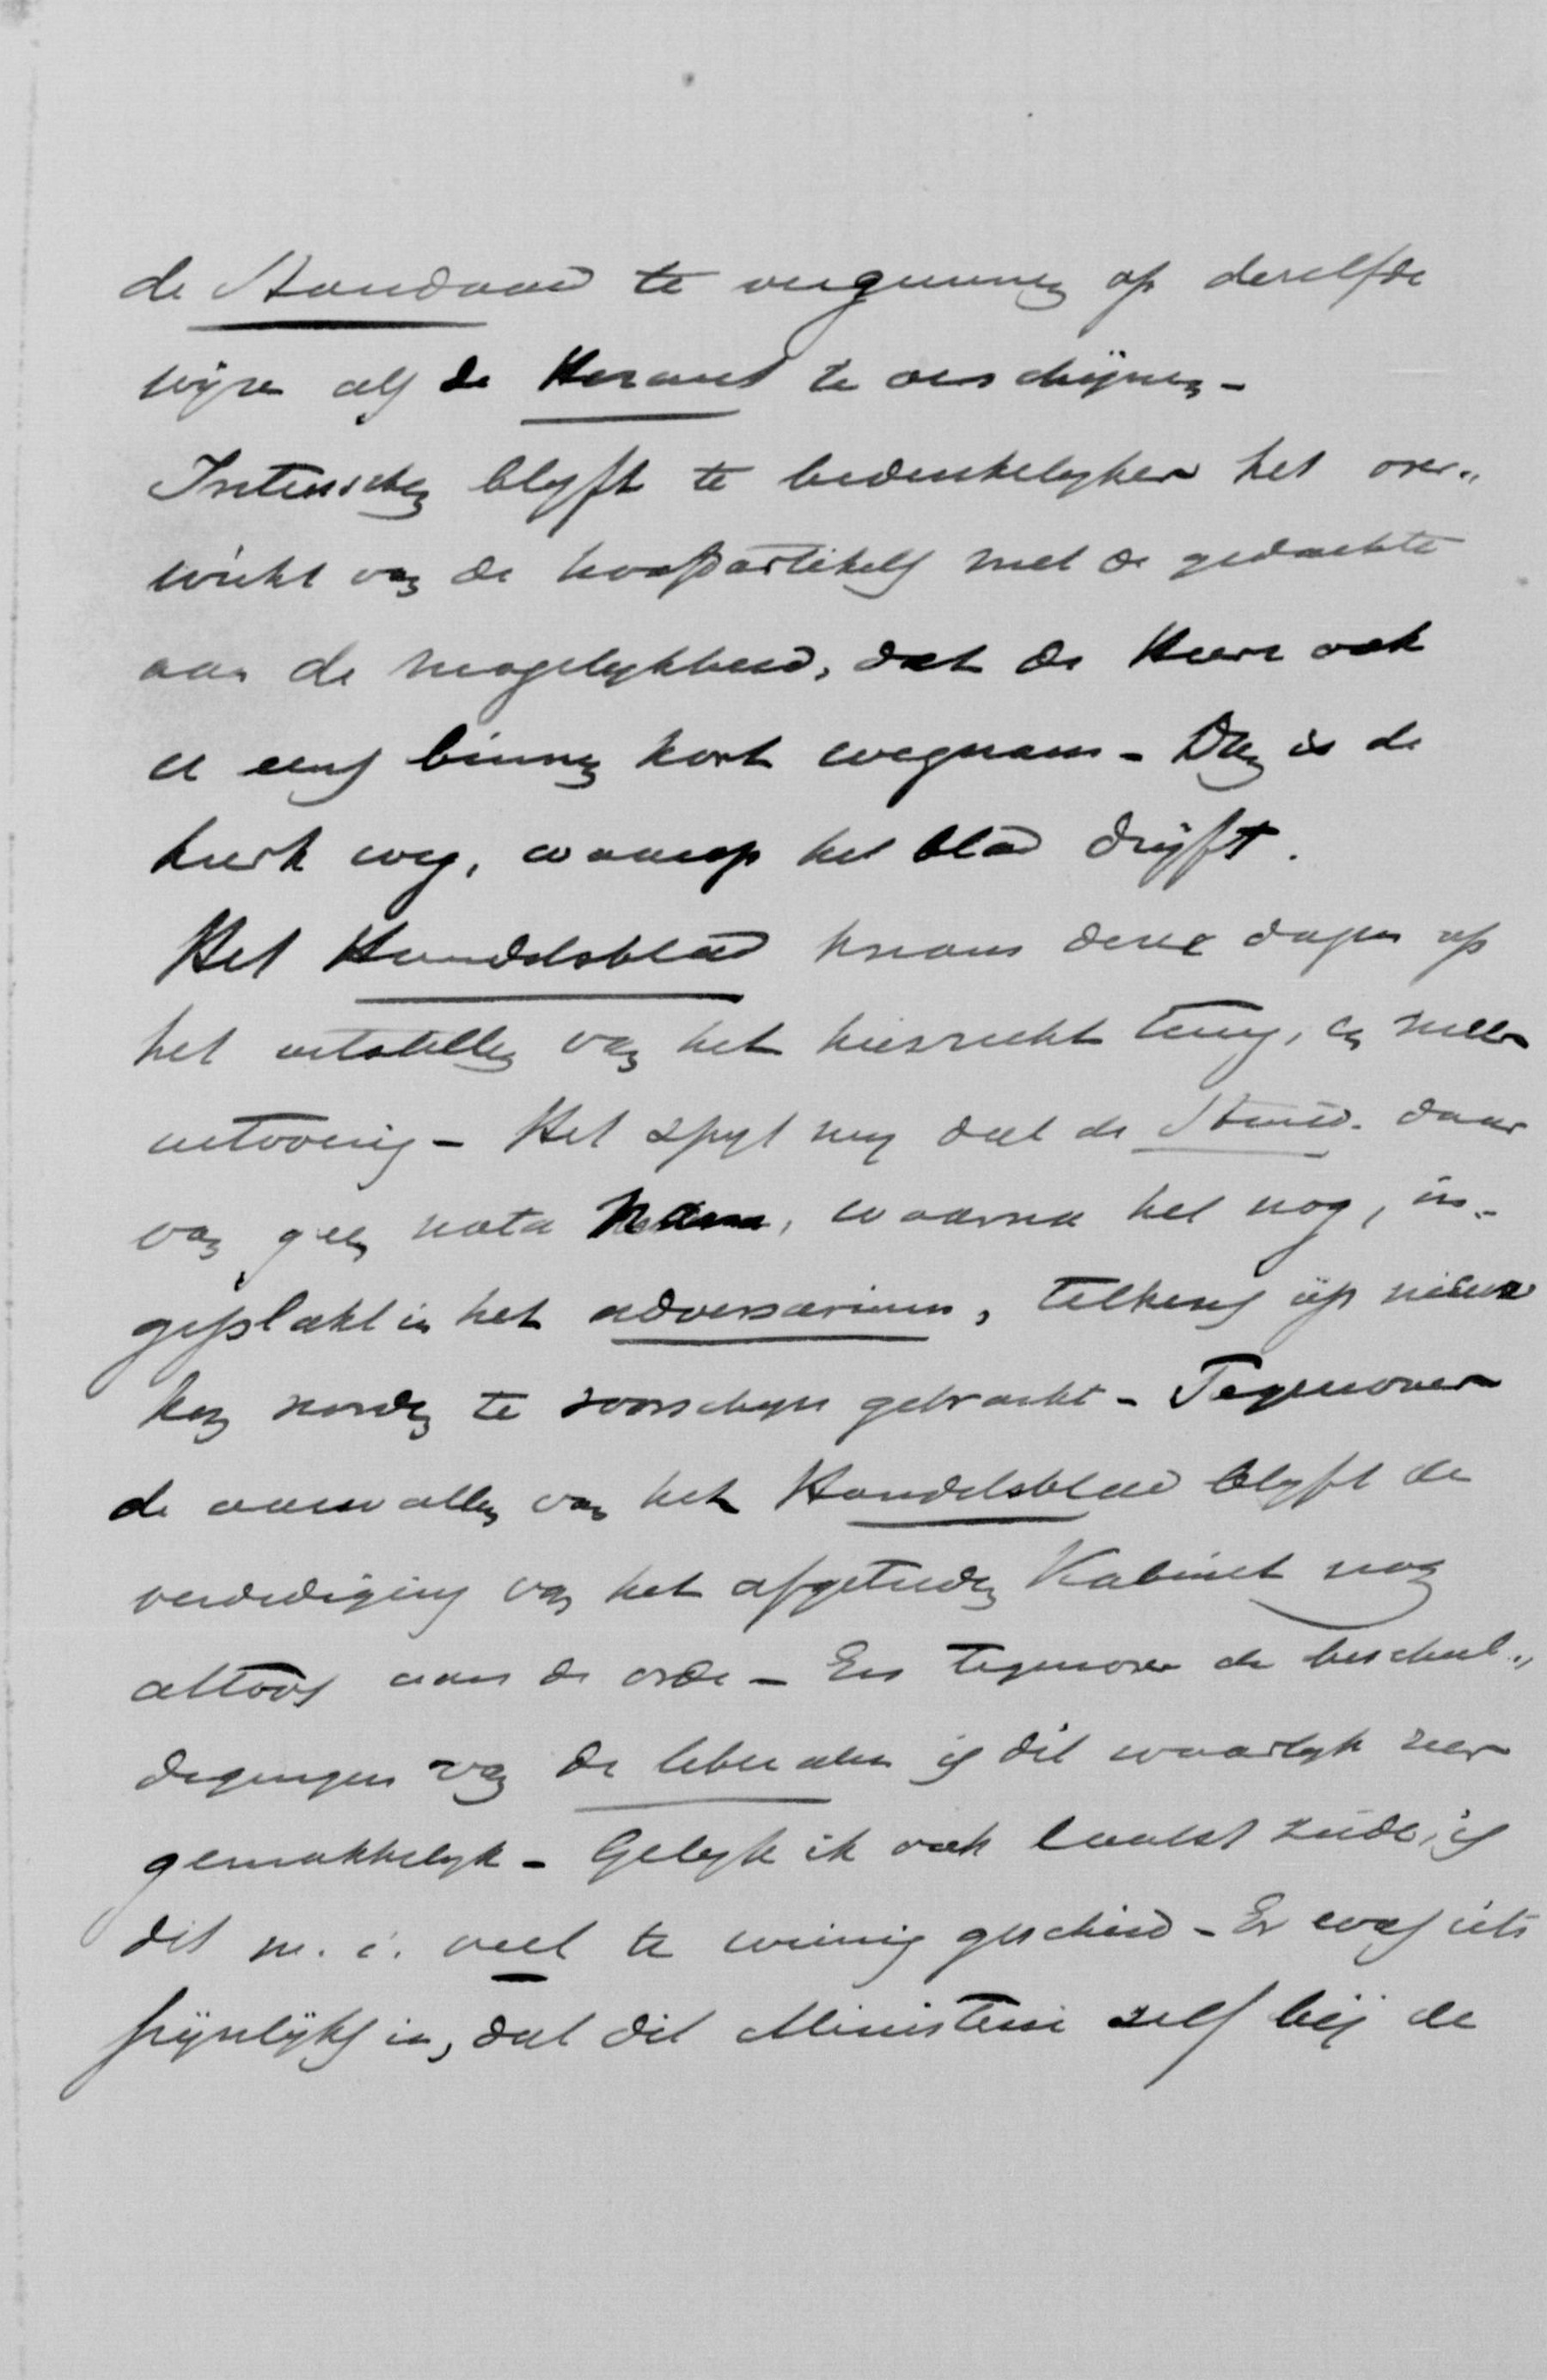 de Standaard te vergunnen op dezelfde
wijze als de Heraut te verschijnen -
Intusschen blyft te bedenkelyker het over„
wicht van de hoofdartikels met de gedachte
aan de mogelykheid, dat de Heere ook
U eens binnen kort wegnam - Dan is de
kurk weg, waarop het blad dryft.
Het Handelsblad kwam deze dagen op
het uitstellen van het kiesrecht terug, en
- Het spyt my dat de Stand. daar
van geen nota nam, waarna het nog, in„
geplakt in het adversarium, telkens op nieuw
kan worden te voorschyn gebracht - Tegenover
de aanvallen van het Handelsblad blyft de
verdediging van het afgetreden Kabinet nog
altoos aan de orde - En tegenover de beschul„
digingen van de liberalen is dit waarlyk zeer
gemakkelyk - Gelyk ik ook laatst zeide, is
dit m. i. veel te weinig geschied - Er was iets
pijnlijks in, dat dit Ministerie zelf bij de